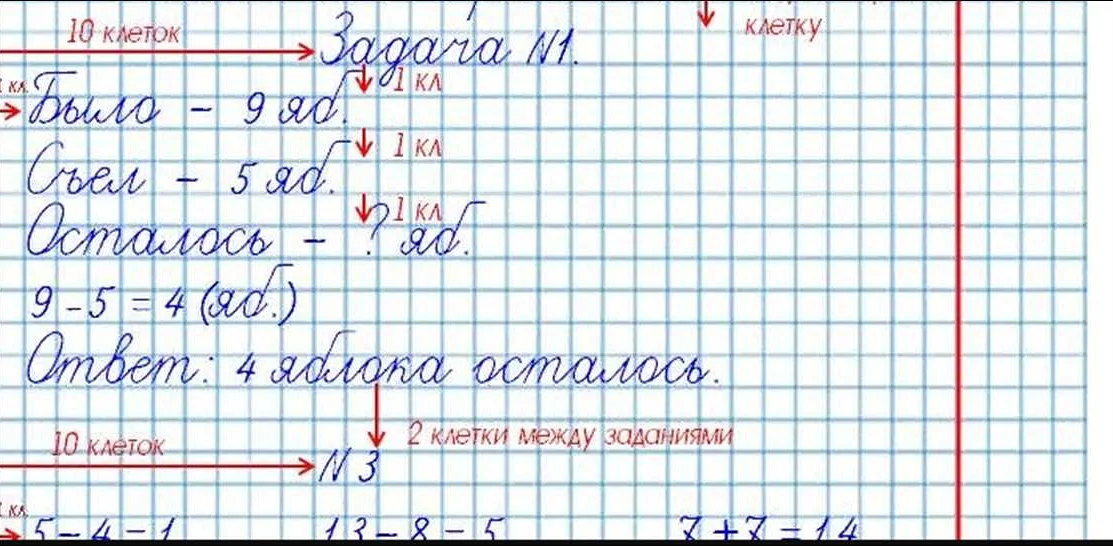 клетку
10 клеток Задача N1.
1 кл. Было – 9 яб. 1 кл
Съел – 5 яб. 1 кл
Осталось – ? яб. 1 кл
9 – 5 = 4 (яб.)
Ответ: 4 яблока осталось.
2 клетки между заданиями
10 клеток N 3
1 кл. 5 – 4 = 1 13 – 8 = 5 7 + 7 = 14